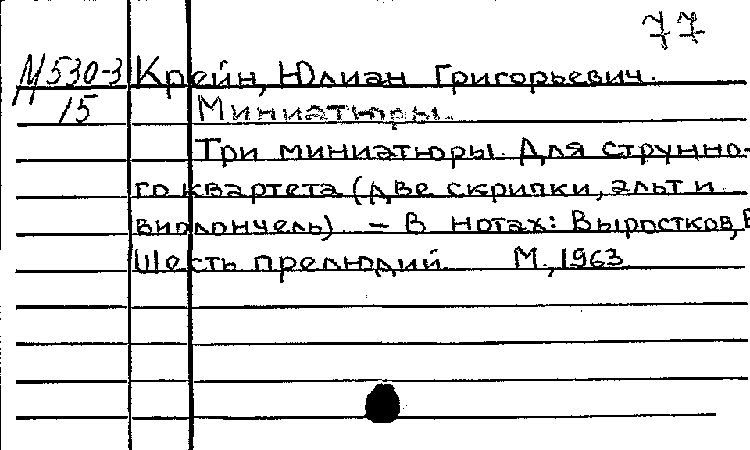 77
М530-3 Крейн, Юлиан Григорьевич.
15 Миниатюры.
Три миниатюры. Для струнно-
го квартета (две скрипки, альт и
виолончель) – В нотах: Выростков, В
Шесть прелюдий М., 1963